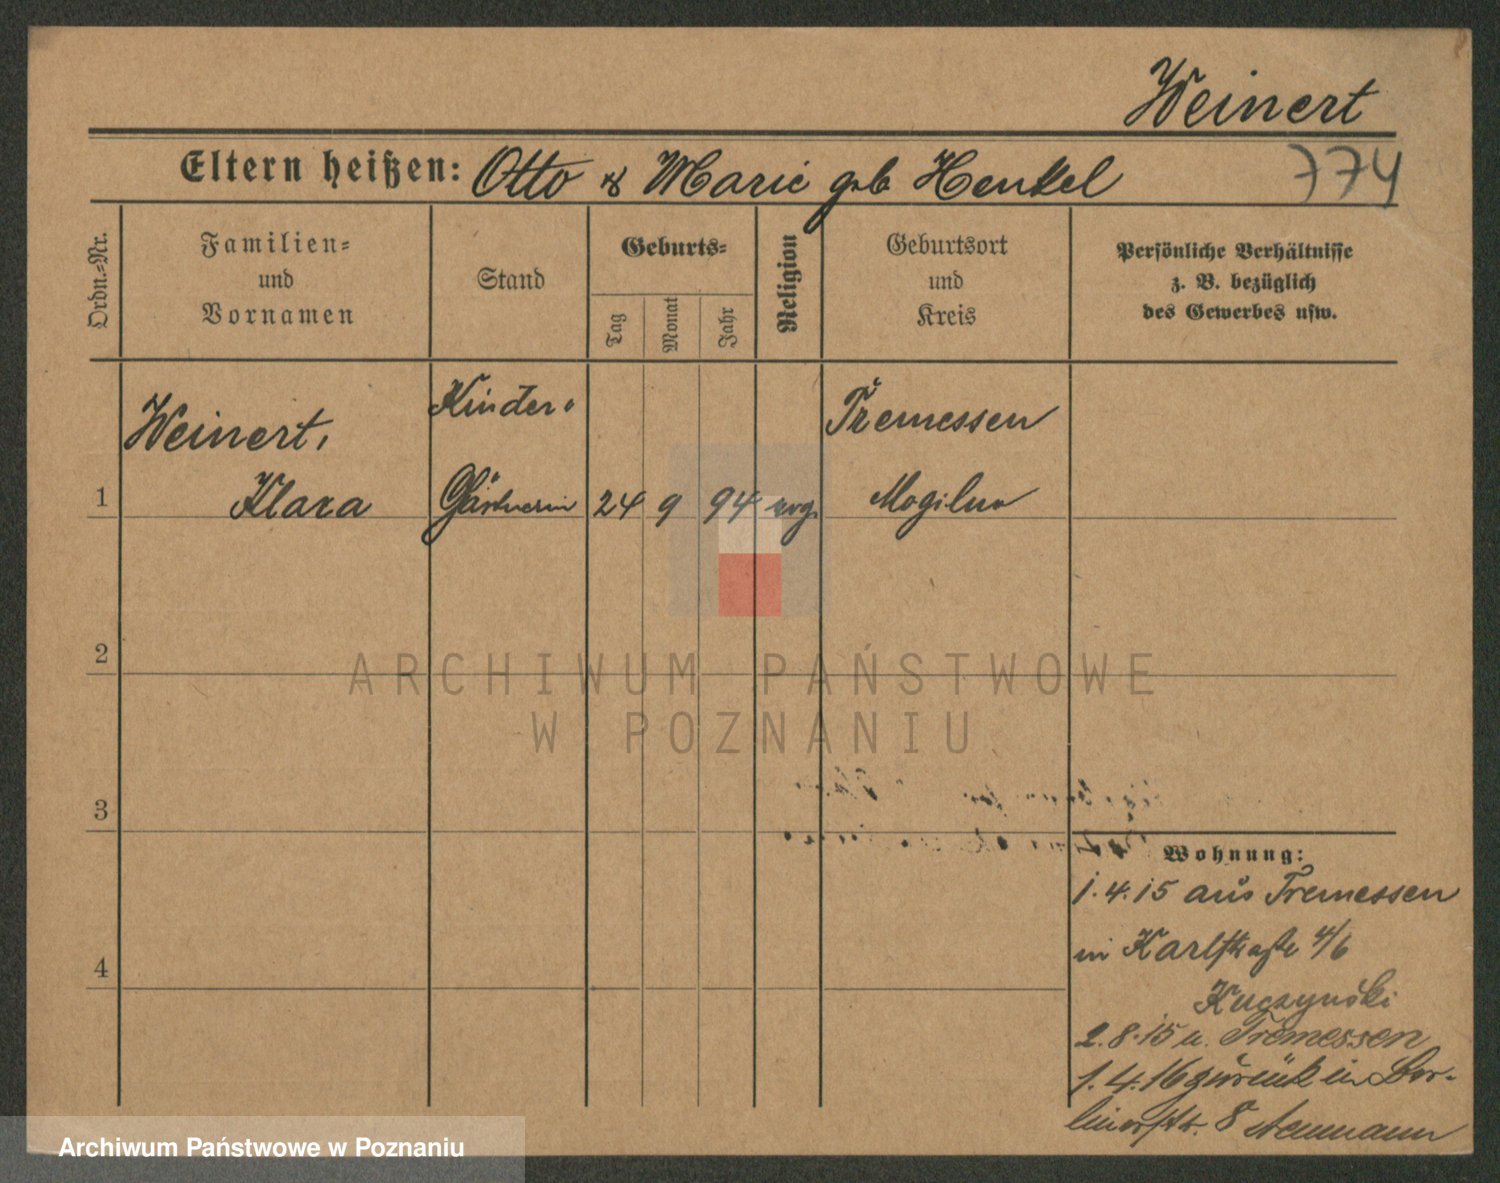 Weinert
Eltern heißen: Otto & Marie geb Henkel
774
Ordn.-Nr.
Familien-
und
Vornamen
Stand
Geburts-
Tag
Monat
Jahr
Religion
Geburtsort
und
Kreis
Persönliche Verhältnisse
z. B. bezüglich
des Gewerbes usw.
Weinert,
Kinder-
Tremessen
1
Klara
Gärtnerin
24
9
94
evg.
Mogilno
2
ARCHIWUM PAŃSTWOWE
W POZNANIU
3
Wohnung:
1.4.15 aus Tremessen
in Karlstraße 4/6
4
Kuczynski
2.8.15 n. Tremessen
1.4.16 zurück in Ber-
linerstr. 8 Neumann
Archiwum Państwowe w Poznaniu